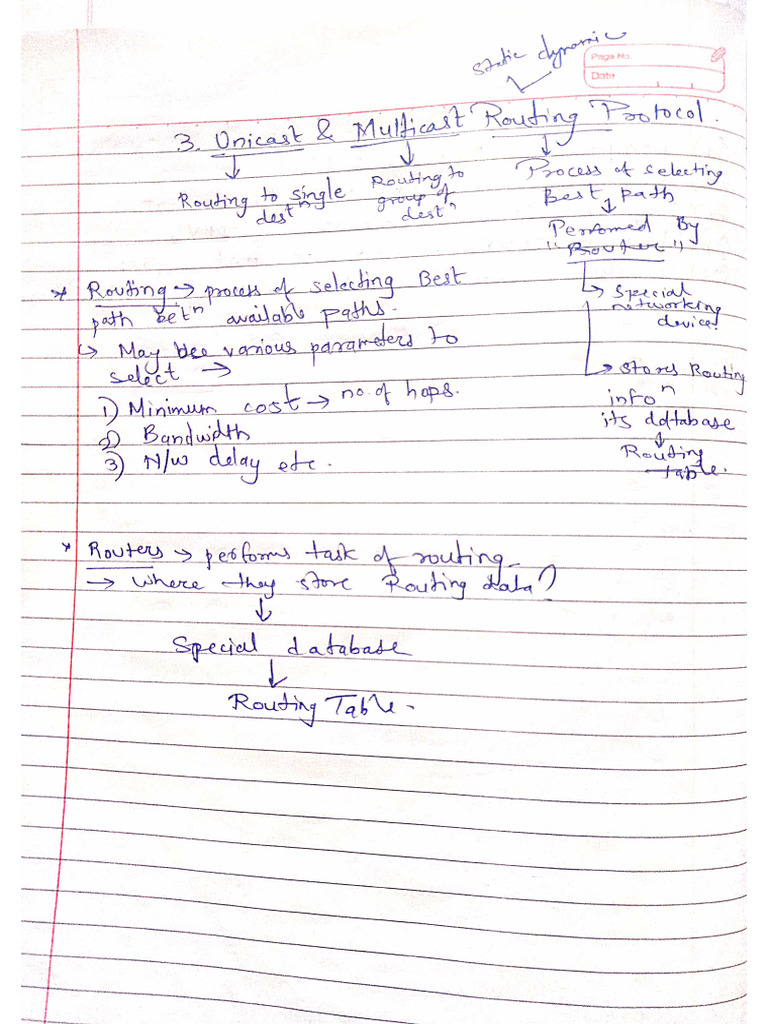 static dynamic
Page No.
Date
3. Unicast & Multicast Routing Protocol.
↓ ↓ ↓
Routing to single destⁿ
Routing to group of destⁿ
Process of selecting
Best path
↓
Performed By
"Router"
↳ special networking device.
↳ stores Routing
infoⁿ
its database
↓
Routing table.
* Routing → process of selecting Best
path betⁿ available paths.
↳ May bee various parameters to
select →
1) Minimum cost → no. of hops.
2) Bandwidth
3) N/w delay etc.
* Routers → performs task of routing
→ where they store Routing data?
↓
Special database
↓
Routing Table.